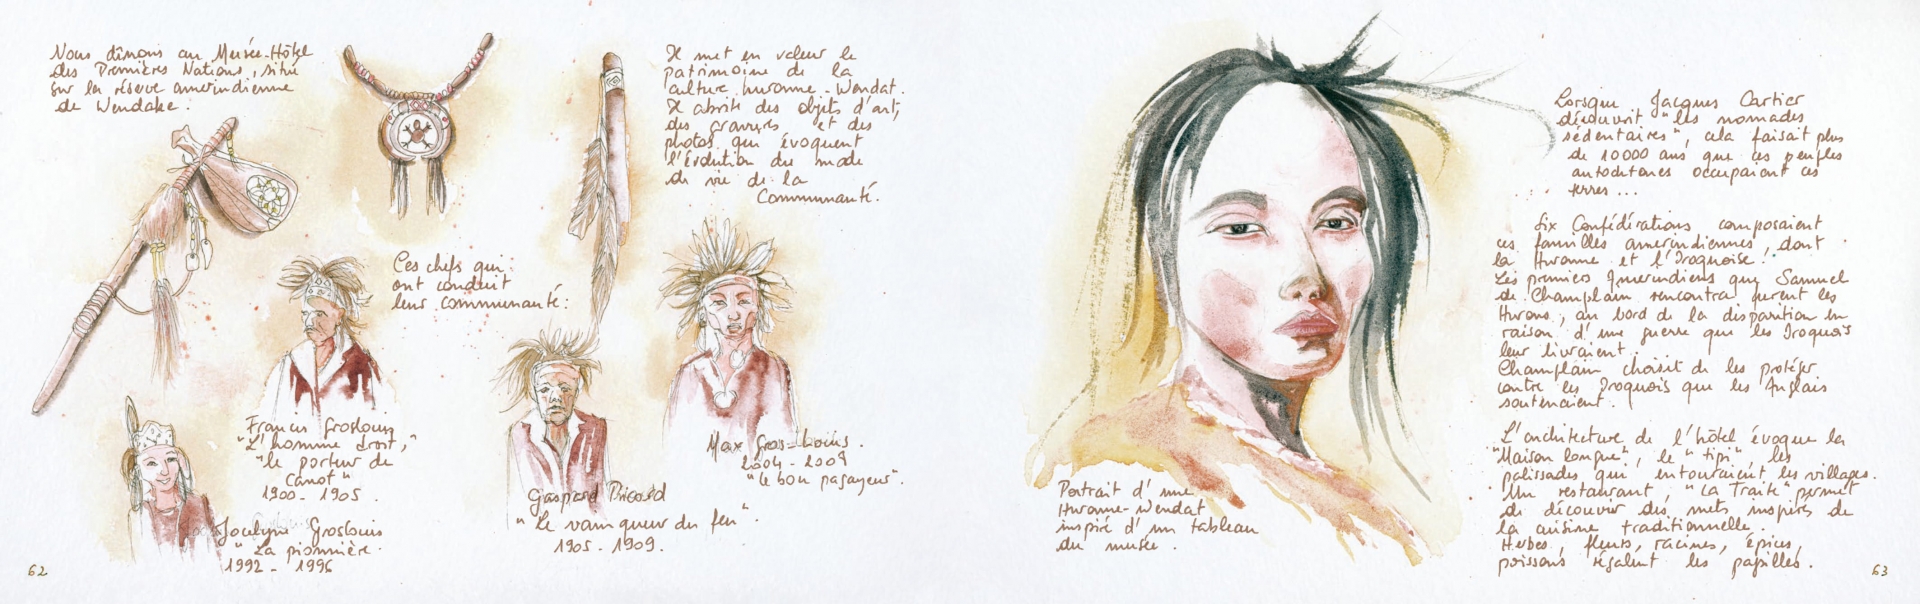 Nous dînons au Musée-Hôtel
des Premières Nations, situé
sur la réserve amérindienne
de Wendake.
Il met en valeur le
patrimoine de la
culture huronne-Wendat.
Il abrite des objets d'art,
des gravures et des
photos qui évoquent
l'Évolution du mode
de vie de la
Communauté.
Ces chefs qui
ont conduit
leur communauté:
Francis Groslouis
"L'homme droit,"
"le porteur de
Canot"
1900 - 1905.
Jocelyne Groslouis
"La pionnière.
1992 - 1996
Gaspard Picard
"le vainqueur du feu".
1905 - 1909.
Max Gros-Louis.
2004 - 2008
"le bon pagayeur".
62
Portrait d'une
Huronne-Wendat
inspiré d'un tableau
du musée.
Lorsque Jacques Cartier
découvrit "les nomades
sédentaires", cela faisait plus
de 10000 ans que ces peuples
autochtones occupaient ces
terres...
Six Confédérations composaient
ces familles amérindiennes, dont
la Huronne et l'Iroquoise.
Les premiers Amérindiens que Samuel
de Champlain rencontra furent les
Hurons, au bord de la disparition en
raison d'une guerre que les Iroquois
leur livraient.
Champlain choisit de les protéger
contre les Iroquois que les Anglais
soutenaient.
L'architecture de l'hôtel évoque la
"Maison longue", le "tipi", les
palissades qui entouraient les villages.
Un restaurant, "La Traite" permet
de découvrir des mets inspirés de
la cuisine traditionnelle.
Herbes, fleurs, racines, épices,
poissons régalent les papilles.
63